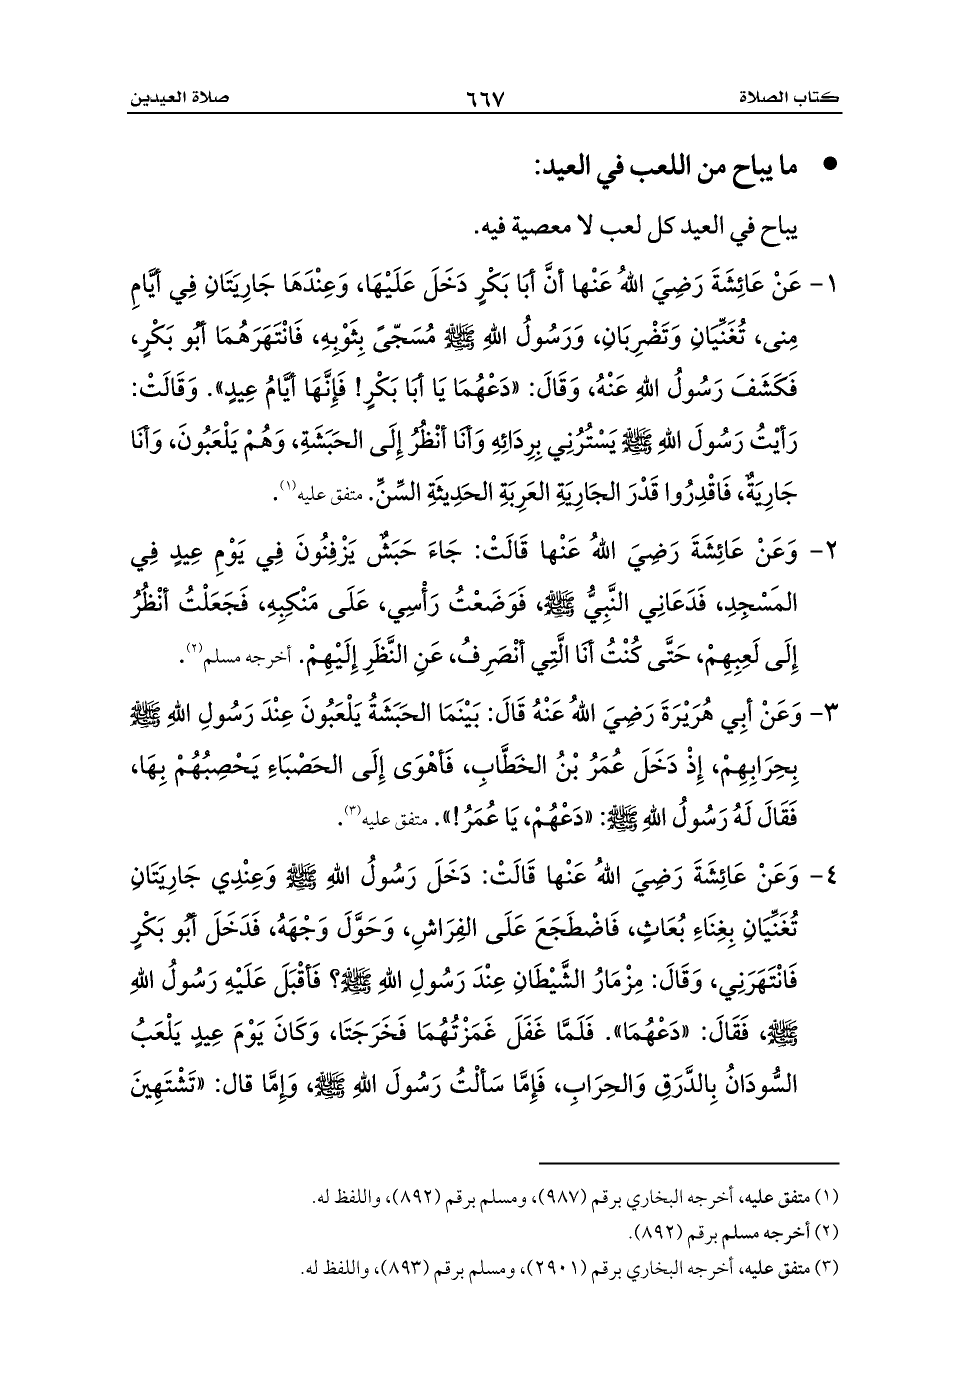 كتاب الصلاة ٦٦٧ صلاة العيدين
• ما يباح من اللعب في العيد:
يباح في العيد كل لعب لا معصية فيه.
١- عَنْ عَائِشَةَ رَضِيَ اللهُ عَنْها أنَّ أبَا بَكْرٍ دَخَلَ عَلَيْهَا، وَعِنْدَهَا جَارِيَتَانِ فِي أيَّامِ
مِنى، تُغَنِّيَانِ وَتَضْرِبَانِ، وَرَسُولُ اللهِ ﷺ مُسَجّىً بِثَوْبِهِ، فَانْتَهَرَهُمَا أبُو بَكْرٍ،
فَكَشَفَ رَسُولُ اللهِ عَنْهُ، وَقَالَ: «دَعْهُمَا يَا أبَا بَكْرٍ! فَإِنَّهَا أيَّامُ عِيدٍ». وَقَالَتْ:
رَأيْتُ رَسُولَ اللهِ ﷺ يَسْتُرُنِي بِرِدَائِهِ وَأنَا أنْظُرُ إِلَى الحَبَشَةِ، وَهُمْ يَلْعَبُونَ، وَأنَا
جَارِيَةٌ، فَاقْدِرُوا قَدْرَ الجَارِيَةِ العَرِبَةِ الحَدِيثَةِ السِّنِّ. متفق عليه(١).
٢- وَعَنْ عَائِشَةَ رَضِيَ اللهُ عَنْها قَالَتْ: جَاءَ حَبَشٌ يَزْفِنُونَ فِي يَوْمِ عِيدٍ فِي
المَسْجِدِ، فَدَعَانِي النَّبِيُّ ﷺ، فَوَضَعْتُ رَأْسِي، عَلَى مَنْكِبِهِ، فَجَعَلْتُ أنْظُرُ
إِلَى لَعِبِهِمْ، حَتَّى كُنْتُ أنَا الَّتِي أنْصَرِفُ، عَنِ النَّظَرِ إِلَيْهِمْ. أخرجه مسلم(٢).
٣- وَعَنْ أبِي هُرَيْرَةَ رَضِيَ اللهُ عَنْهُ قَالَ: بَيْنَمَا الحَبَشَةُ يَلْعَبُونَ عِنْدَ رَسُولِ اللهِ ﷺ
بِحِرَابِهِمْ، إِذْ دَخَلَ عُمَرُ بْنُ الخَطَّابِ، فَأهْوَى إِلَى الحَصْبَاءِ يَحْصِبُهُمْ بِهَا،
فَقَالَ لَهُ رَسُولُ اللهِ ﷺ: «دَعْهُمْ، يَا عُمَرُ!». متفق عليه(٣).
٤- وَعَنْ عَائِشَةَ رَضِيَ اللهُ عَنْها قَالَتْ: دَخَلَ رَسُولُ اللهِ ﷺ وَعِنْدِي جَارِيَتَانِ
تُغَنِّيَانِ بِغِنَاءِ بُعَاثٍ، فَاضْطَجَعَ عَلَى الفِرَاشِ، وَحَوَّلَ وَجْهَهُ، فَدَخَلَ أبُو بَكْرٍ
فَانْتَهَرَنِي، وَقَالَ: مِزْمَارُ الشَّيْطَانِ عِنْدَ رَسُولِ اللهِ ﷺ؟ فَأقْبَلَ عَلَيْهِ رَسُولُ اللهِ
ﷺ، فَقَالَ: «دَعْهُمَا». فَلَمَّا غَفَلَ غَمَزْتُهُمَا فَخَرَجَتَا، وَكَانَ يَوْمَ عِيدٍ يَلْعَبُ
السُّودَانُ بِالدَّرَقِ وَالحِرَابِ، فَإِمَّا سَألْتُ رَسُولَ اللهِ ﷺ، وَإِمَّا قال: «تَشْتَهِينَ
(١) متفق عليه، أخرجه البخاري برقم (٩٨٧)، ومسلم برقم (٨٩٢)، واللفظ له.
(٢) أخرجه مسلم برقم (٨٩٢).
(٣) متفق عليه، أخرجه البخاري برقم (٢٩٠١)، ومسلم برقم (٨٩٣)، واللفظ له.